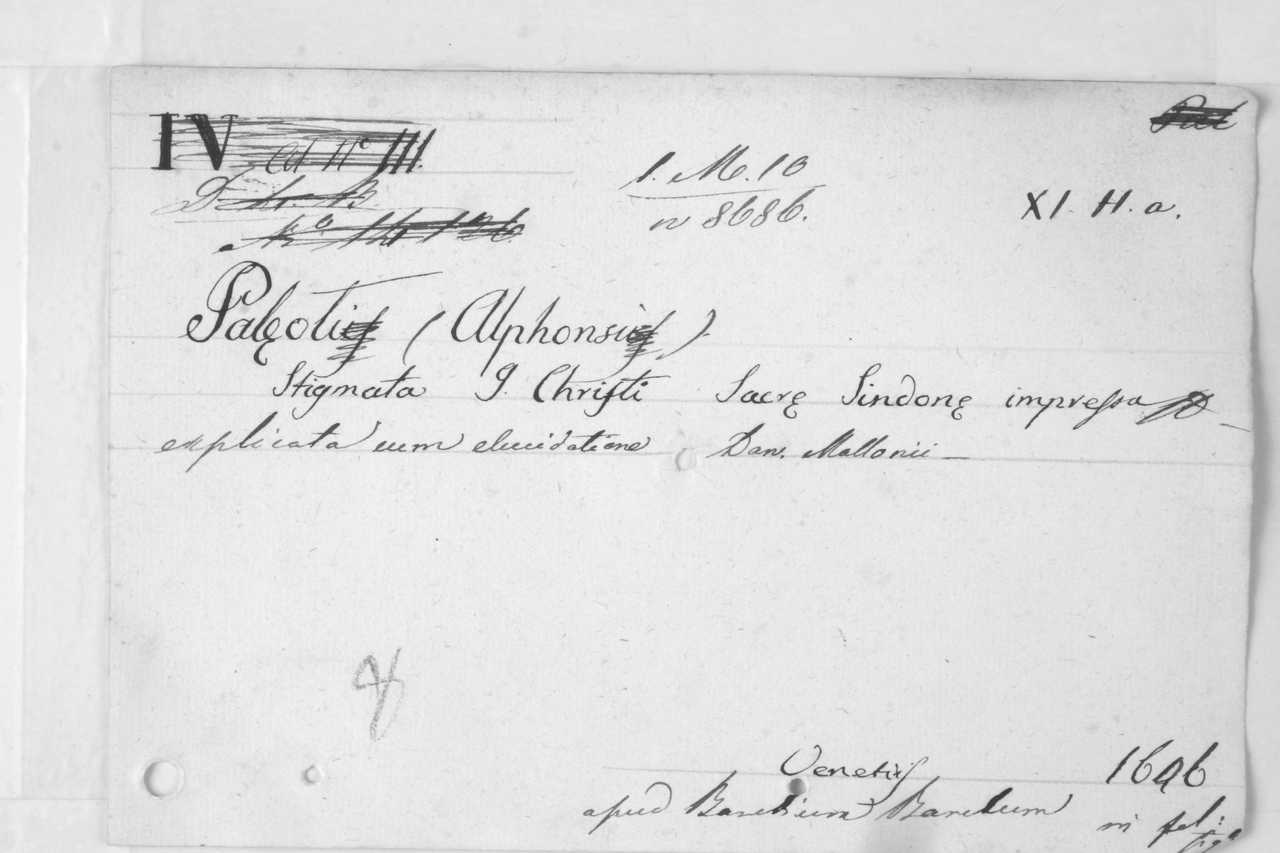 IV Cd No III.
Pal
1. M. 10
n 8686.
XI. H. a.
Palęoti (Alphonsi)
Stigmata J. Christi Sacrę Sindonę impressa
explicata cum elucidatione Dan. Mallonii —
Venetiis 1696
apud Baretium Baretium in fol:
fig.